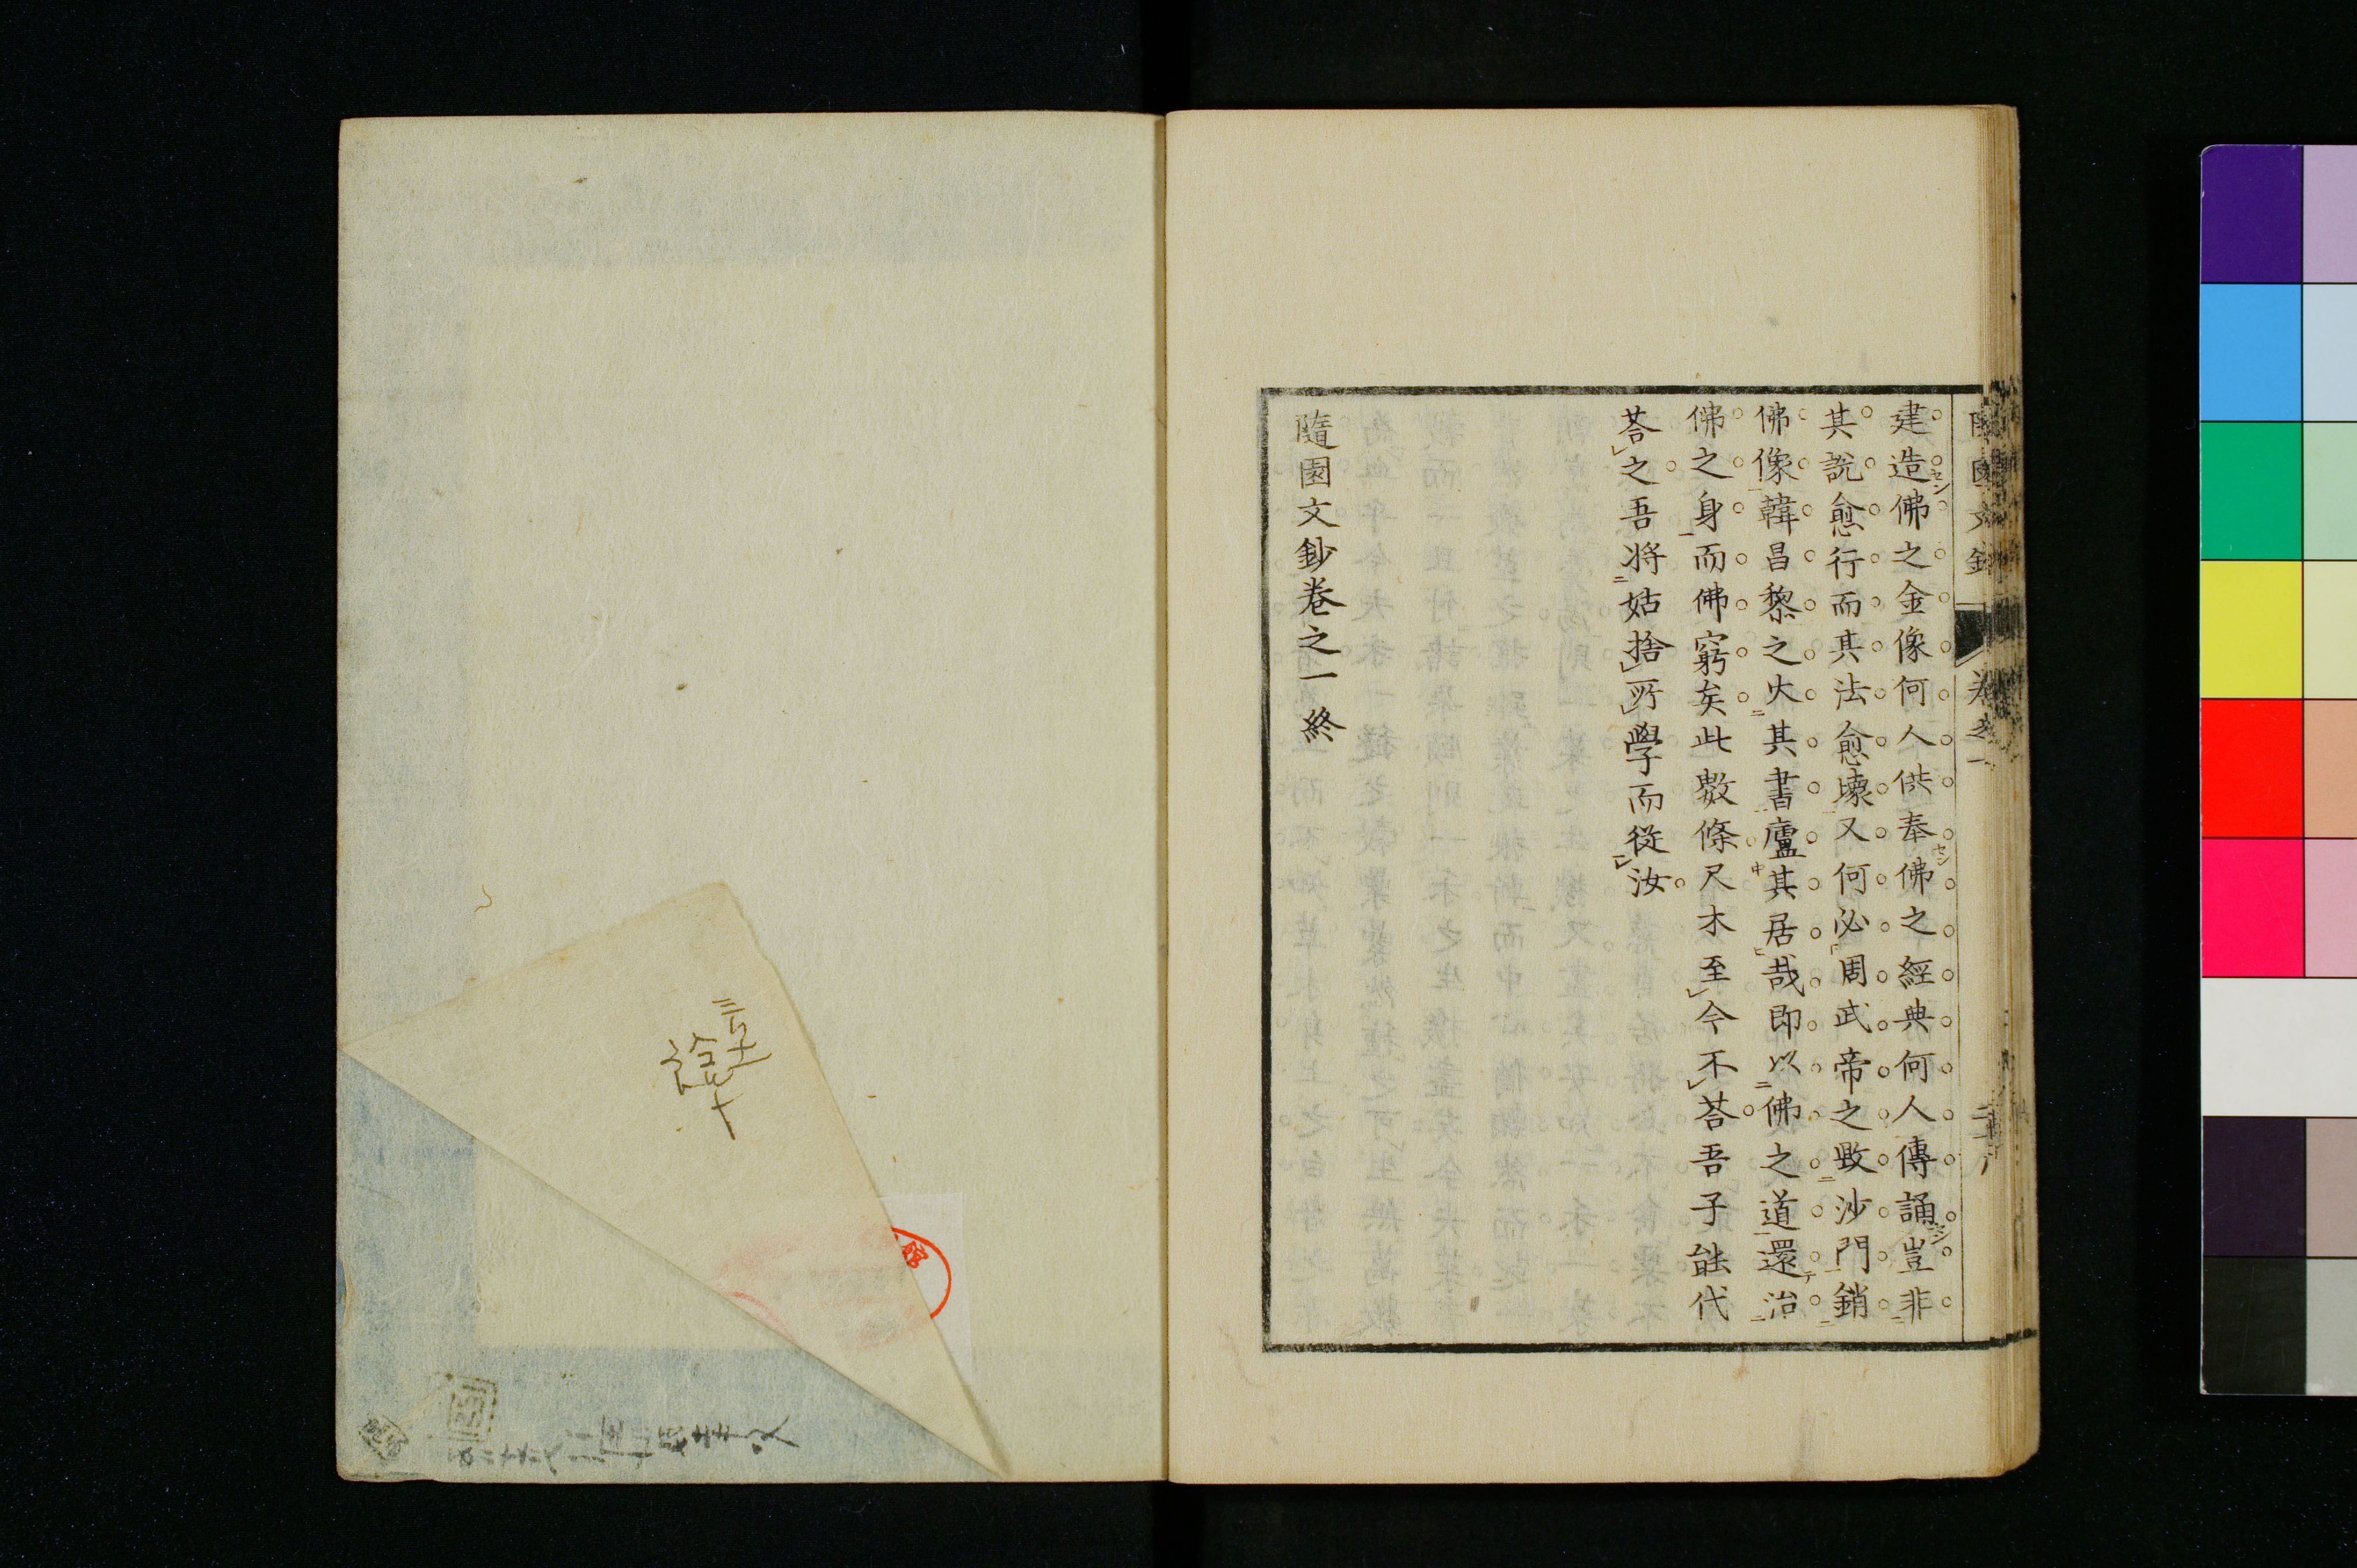 隨園文鈔 卷之一
建造佛之金像何人供奉佛之經典何人傳誦豈非
其說愈行而其法愈壞又何必周武帝之毀沙門銷
佛像韓昌黎之火其書廬其居哉即以佛之道還治
佛之身而佛窮矣此數條尺木至今不荅吾子能代
荅之吾將姑捨所學而從汝
隨園文鈔卷之一終